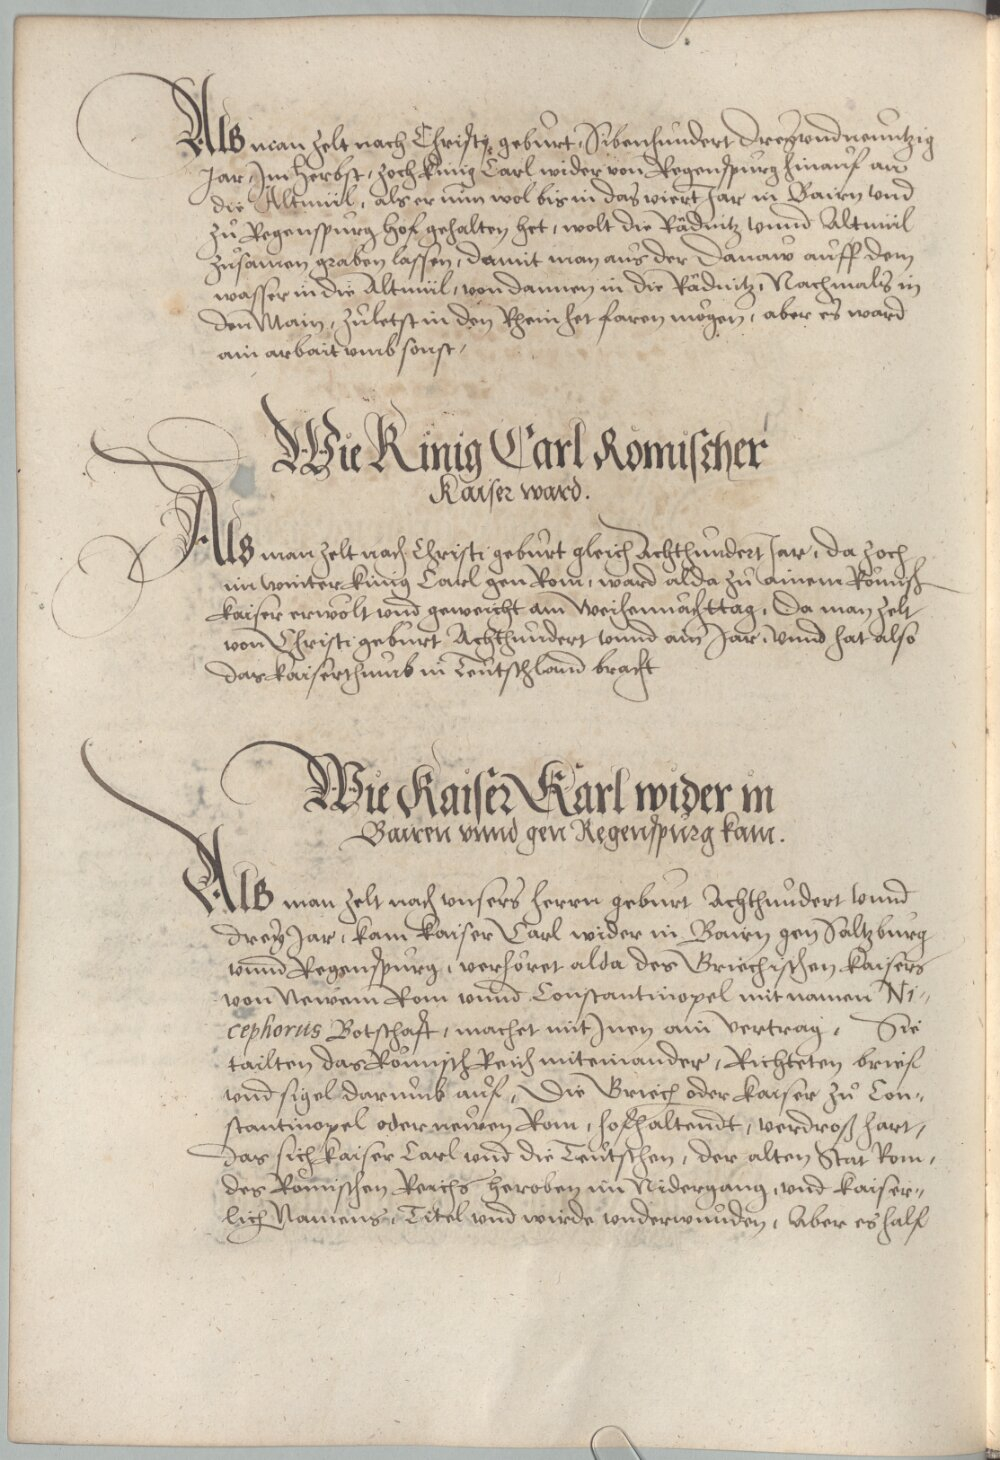 Als man zelt nach Christi geburt, Sibenhundert dreyundneuntzig
Jar, Im Herbst, zoch künig Carl wider von Regenspurg hinauf an
die Altmül, als er nun wol bis in das viert Jar in Bairn vnd
zu Regenspurg Hof gehalten het, wolt die Rädnitz vnnd Altmül
zusamen graben lassen, damit man aus der Danaw auff dem
wasser in die Altmül, von dannen in die Rädnitz, Nachmals in
den Main, zuletst in den Rhein het faren mögen, aber es ward
ain arbait vmb sonst,
Wie Künig Carl Römischer
Kaiser ward.
Als man zelt nach Christi geburt gleich Achthundert Jar, da zoch
im winter künig Carl gen Rom, ward alda zu ainem Römisch
kaiser erwölt vnd geweicht am Weihennachttag, Da man zelt
von Christi geburt Achthundert vnnd ain Jar, vnnd hat also
das kaiserthumb in Teutschland bracht
Wie Kaiser Karl wider in
Bairen vnnd gen Regenspurg kam.
Als man zelt nach vnsers herrn geburt Achthundert vnnd
drey Jar, kam kaiser Carl wider in Bairn gen Saltzburg
vnnd Regenspurg, verhöret alda des Griechischen kaisers
von Newem Rom vnnd Constantinopel mit namen Ni-
cephorus Botschafft, machet mit Inen ain vertrag, Sie
tailten das Römisch Reich miteinander, Richteten brief
vnd sigel darumb auf, Die Griech oder kaiser zu Con-
stantinopel oder newen Rom, hofhaltendt, verdroß hart,
das sich kaiser Carl vnd die Teutschen, der alten Stat Rom,
des Römischen Reichs heroben im Nidergang, vnd kaiser-
lich Namens, Titel vnd wirde vnderwunden, Aber es half